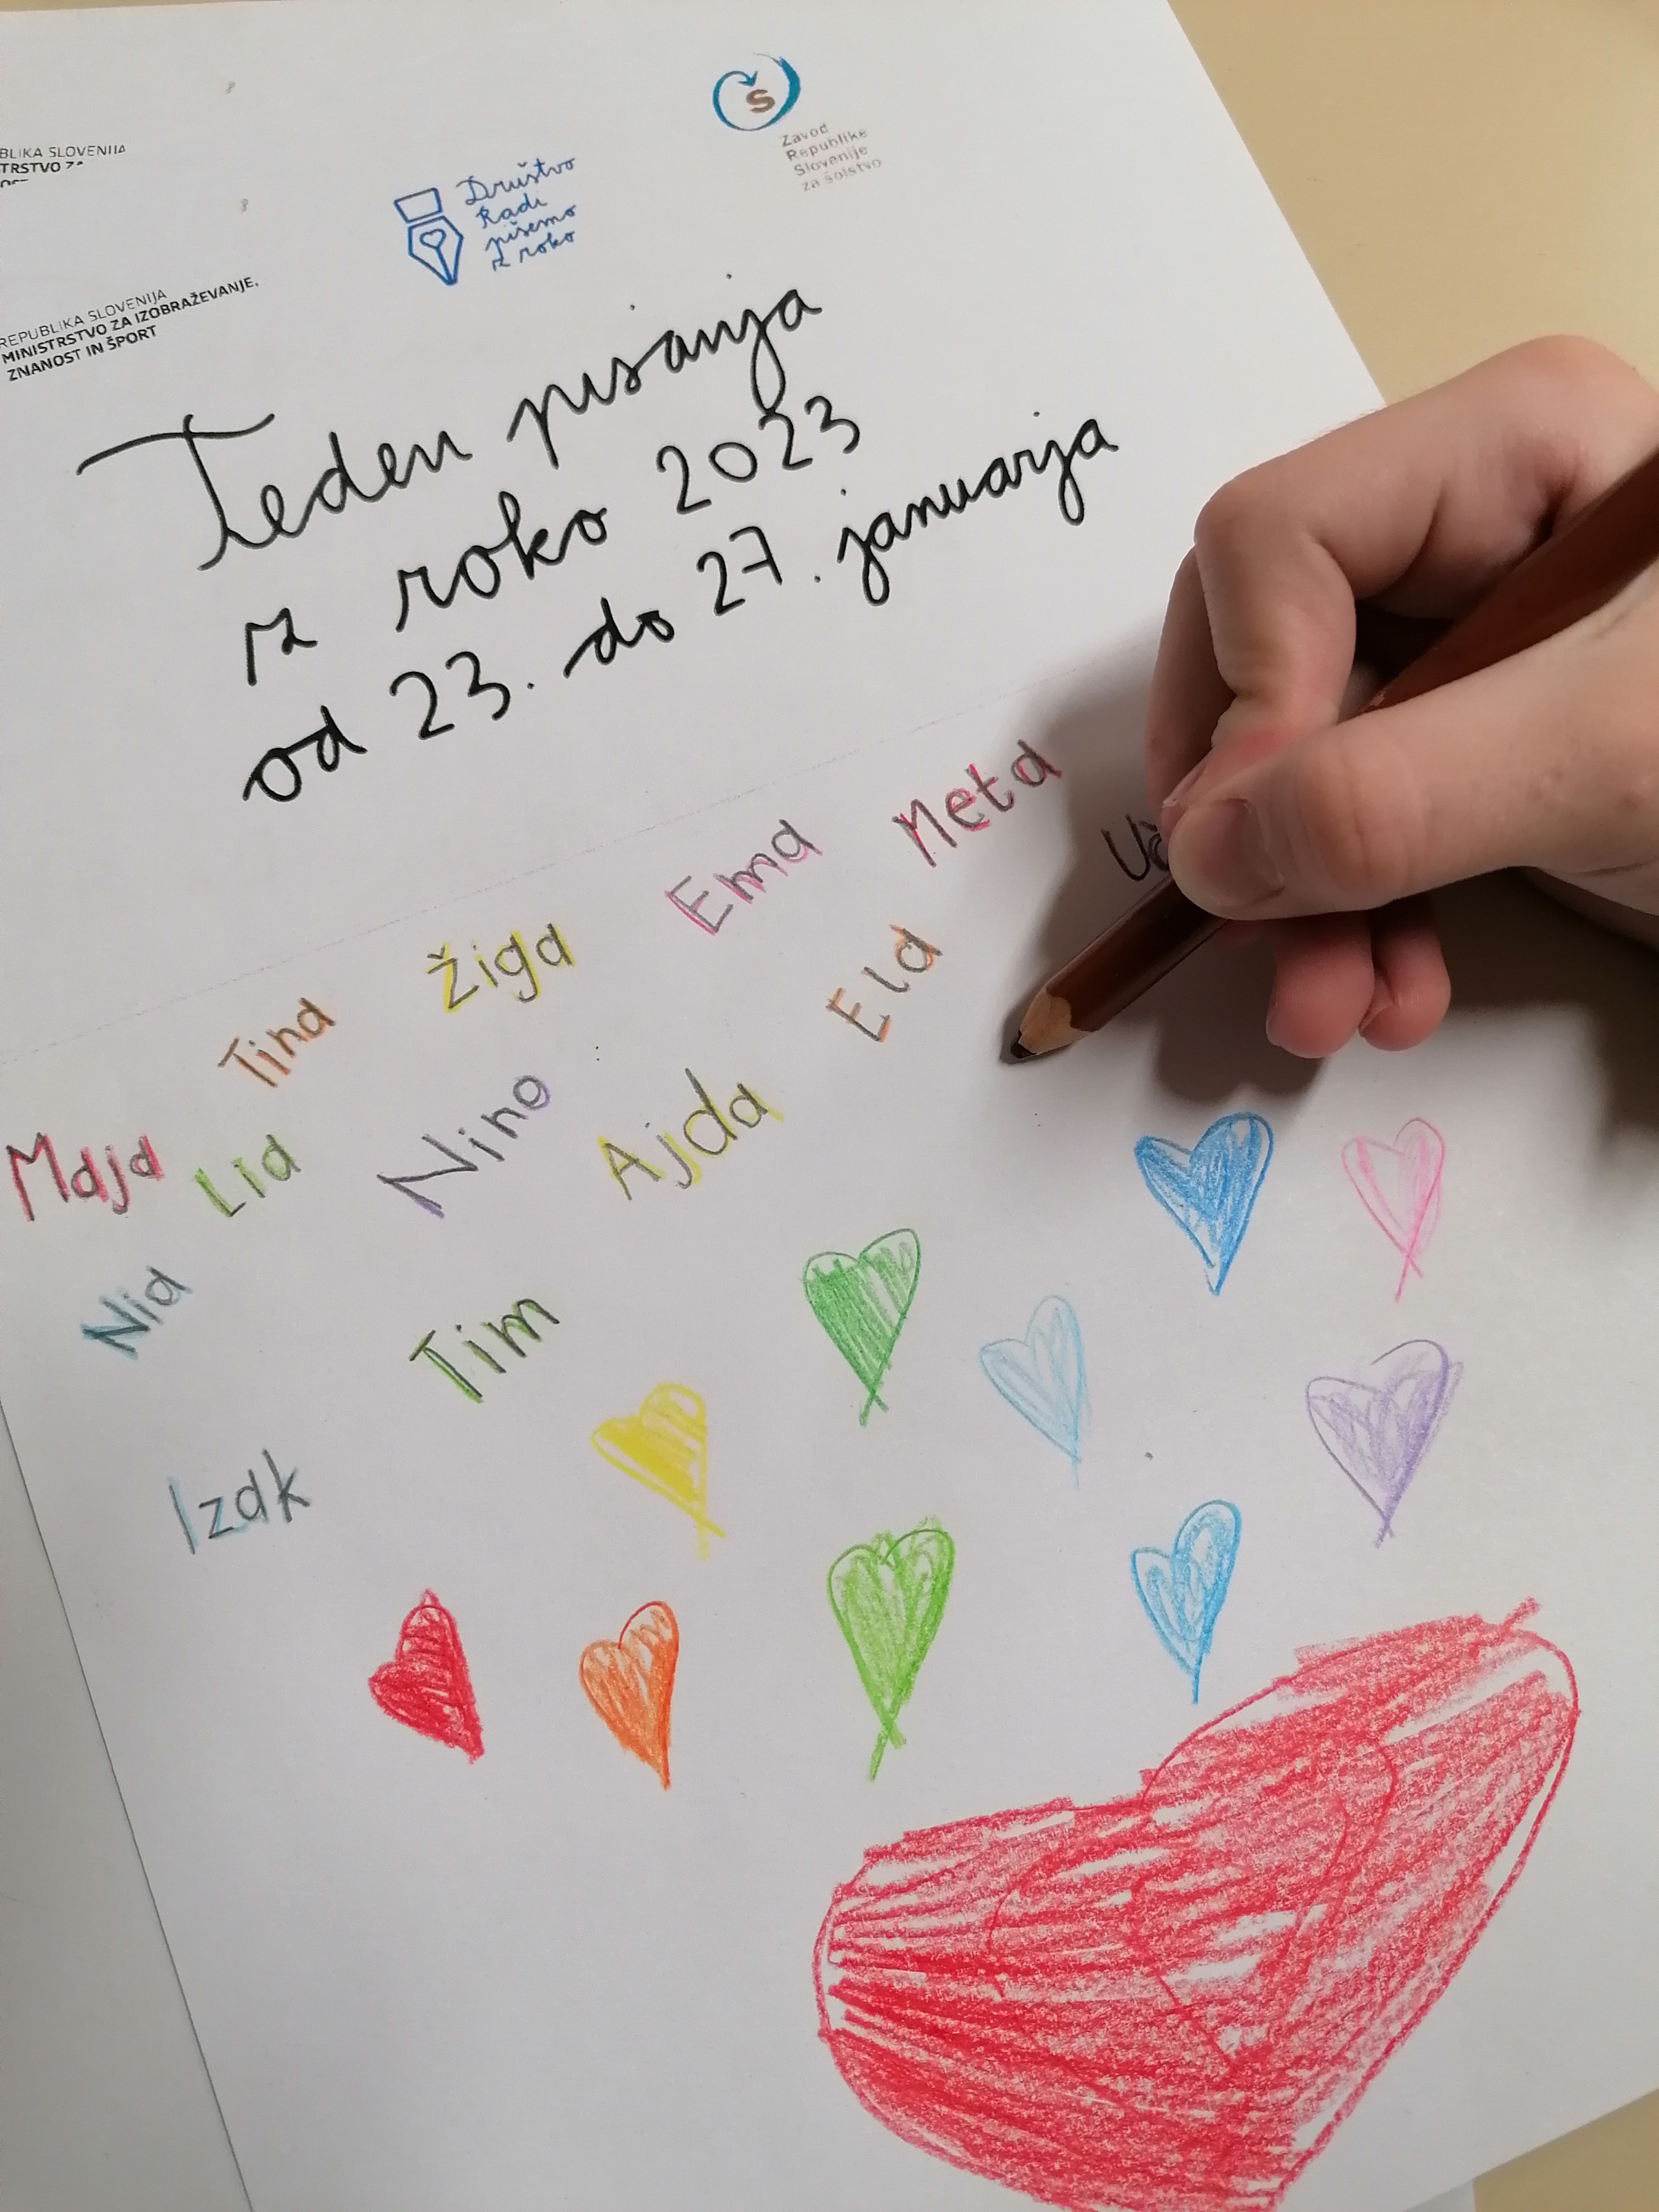 BLIKA SLOVENIJA
TRSTVO ZA
REPUBLIKA SLOVENIJA
MINISTRSTVO ZA IZOBRAŽEVANJE,
ZNANOST IN ŠPORT
Društvo
Radi
pišemo
z roko
Š
Zavod
Republike
Slovenije
za šolstvo
Teden pisanja
z roko 2023
od 23. do 27. januarja
Meta
Uč
Ema
Žiga
Ela
Tina
Nino
Ajda
Maja
Lia
Nia
Tim
Izak